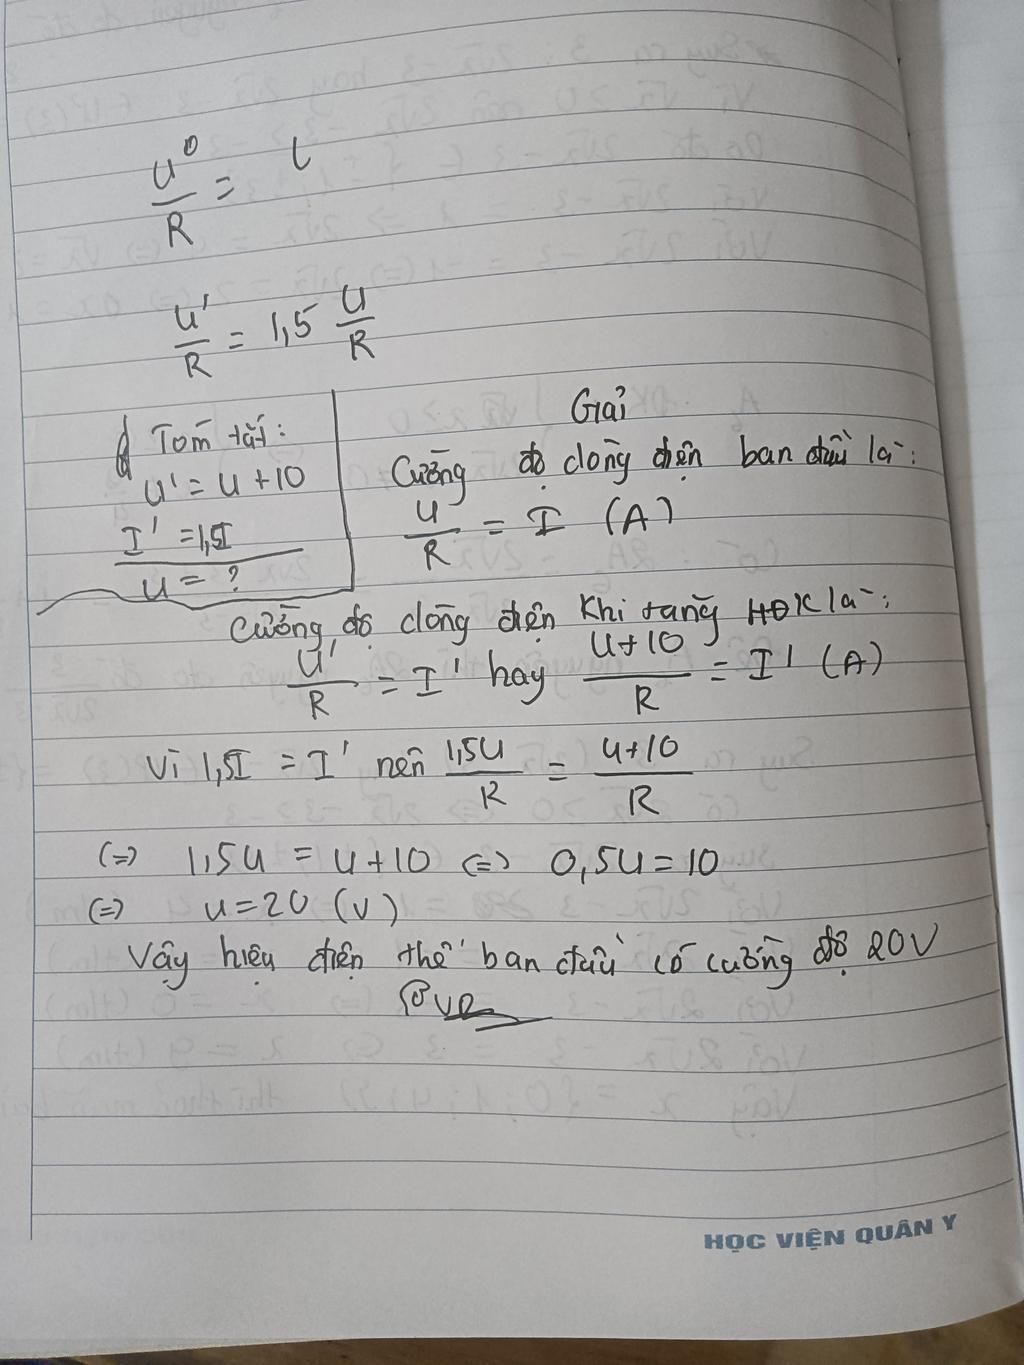 U
R =
U'
R = 1,5 U
R
Tóm tắt:
U' = U + 10
I' = 1,5I
U = ?
Giải
Cường độ dòng điện ban đầu là:
U
R = I (A)
Cường độ dòng điện khi tăng HĐK là:
U'
R = I' hay U+10
R = I' (A)
Vì 1,5I = I' nên 1,5U
R = U+10
R
(=) 1,5U = U+10 (=) 0,5U = 10
(=) U = 20 (V)
Vậy hiệu điện thế ban đầu có cường độ 20V
HỌC VIỆN QUÂN Y